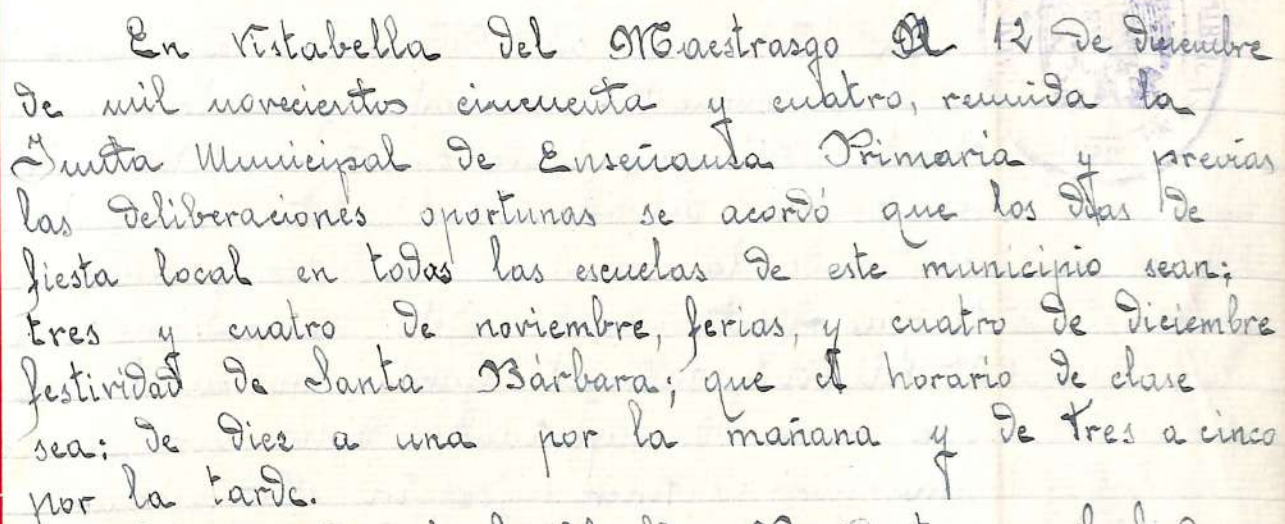 En Vistabella del Maestrasgo a 12 de diciembre
de mil novecientos cincuenta y cuatro, reunida la
Junta Municipal de Enseñanza Primaria y previas
las deliberaciones oportunas se acordó que los días de
fiesta local en todas las escuelas de este municipio sean;
tres y cuatro de noviembre, ferias, y cuatro de diciembre
festividad de Santa Bárbara; que el horario de clase
sea: de diez a una por la mañana y de tres a cinco
por la tarde.